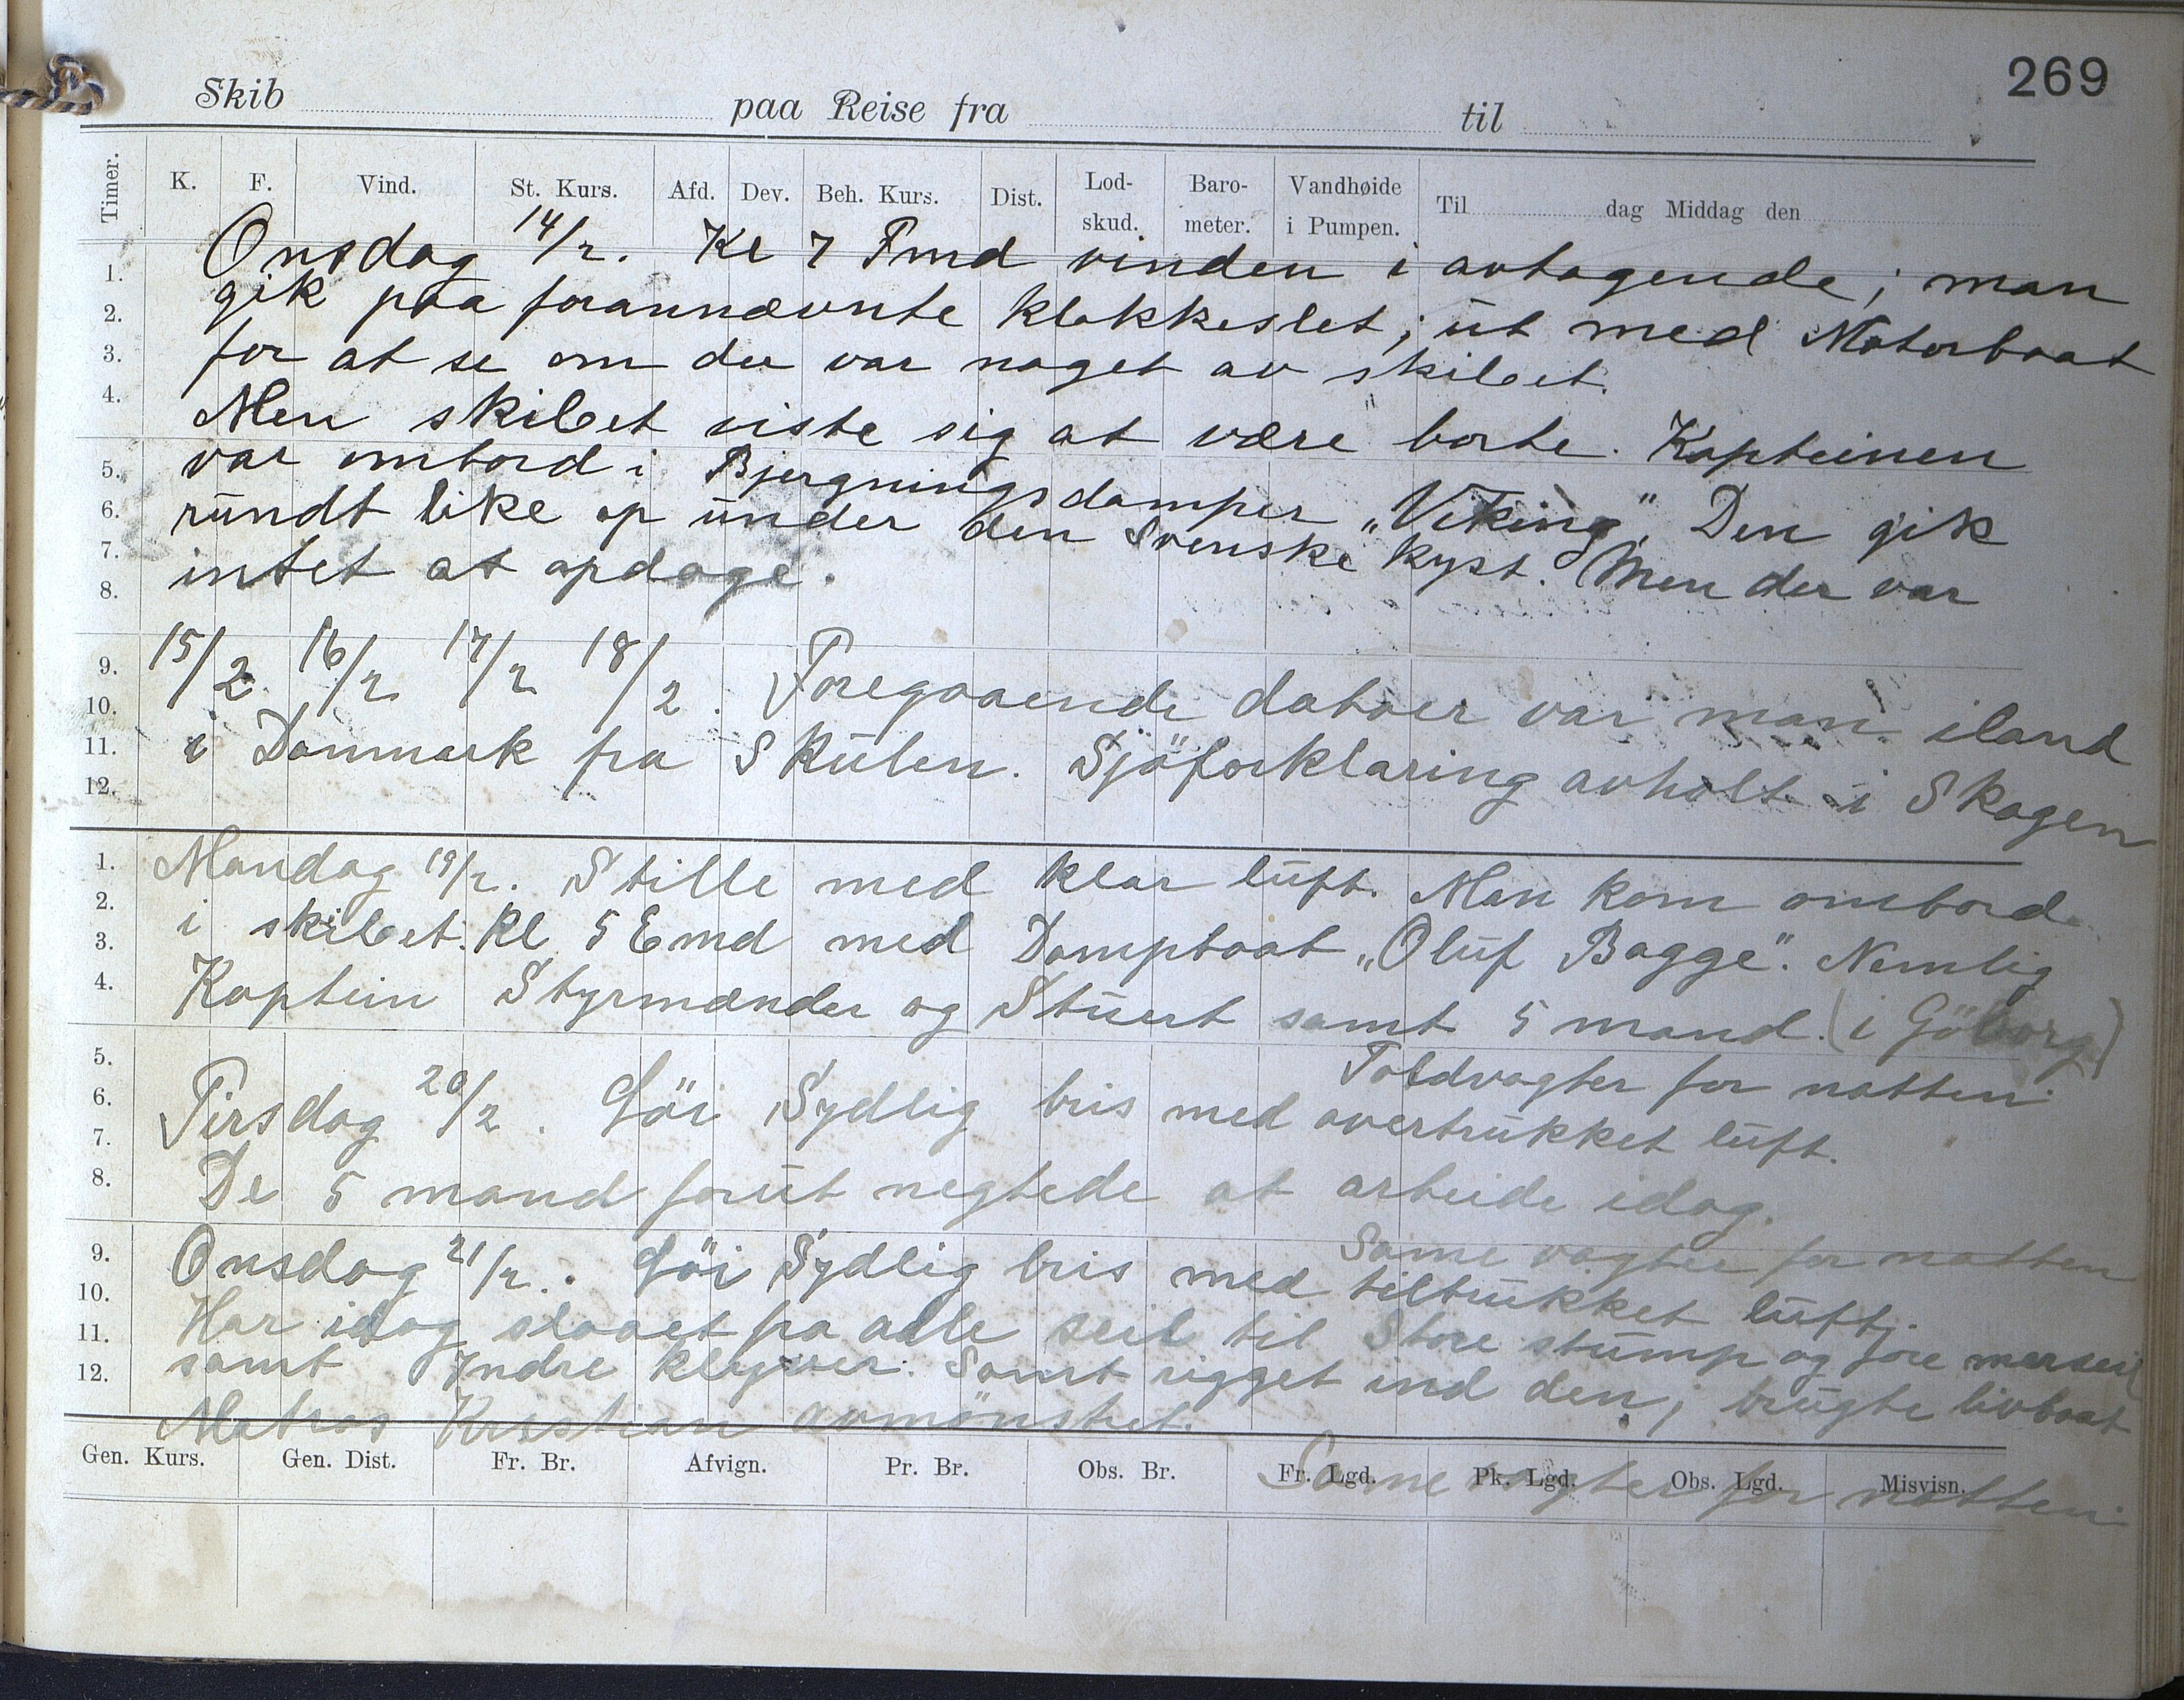 269
Skib paa Reise fra til
Timer. K. F. Vind. St. Kurs. Afd. Dev. Beh. Kurs. Dist. Lod-skud. Baro-meter. Vandhøide i Pumpen. Til dag Middag den
Onsdag 14/2. Kl 7 Fmd vinden i avtagende; man
1.
gik paa forannævnte klokkeslet; ut med Motorbaat
2.
for at se om der var noget av skibet.
3.
4.
Men skibet viste sig at være borte. Kapteinen
var ombord i Bjergningsdamper „Viking". Den gik
5.
rundt like op under den Svenske kyst. Men der var
6.
7.
intet at opdage.
8.
15/2. 16/2 17/2 18/2. Foregaaende datoer var man iland
9.
10.
i Danmark fra Skuten. Sjöforklaring avholt i Skagen
11.
12.
Mandag 19/2. Stille med klar luft. Man kom ombord
1.
2.
i skibet. Kl 5 Emd med Dampbaat „Oluf Bagge". Nemlig
3.
Kaptein Styrmænder og Stuert samt 5 mand. (i Göborg)
4.
Toldvagter for natten.
5.
Tirsdag 20/2. Löi Sydlig bris med overtrukket luft.
6.
7.
De 5 mand forut negtede at arbeide idag.
8.
Same vagter for natten
Onsdag 21/2. Löi Sydlig bris med tiltrukket luft.
9.
10.
Har idag slaaet fra alle seil til Store stump og fore merseil
11.
samt Indre klyver. Samt rigget ind den; brugte livbaat
12.
Matros Kristian avmönstret.
Gen. Kurs. Gen. Dist. Fr. Br. Afvign. Pr. Br. Obs. Br. Fr. Lgd. Pk. Lgd. Obs. Lgd. Misvisn.
Same vagter for natten.